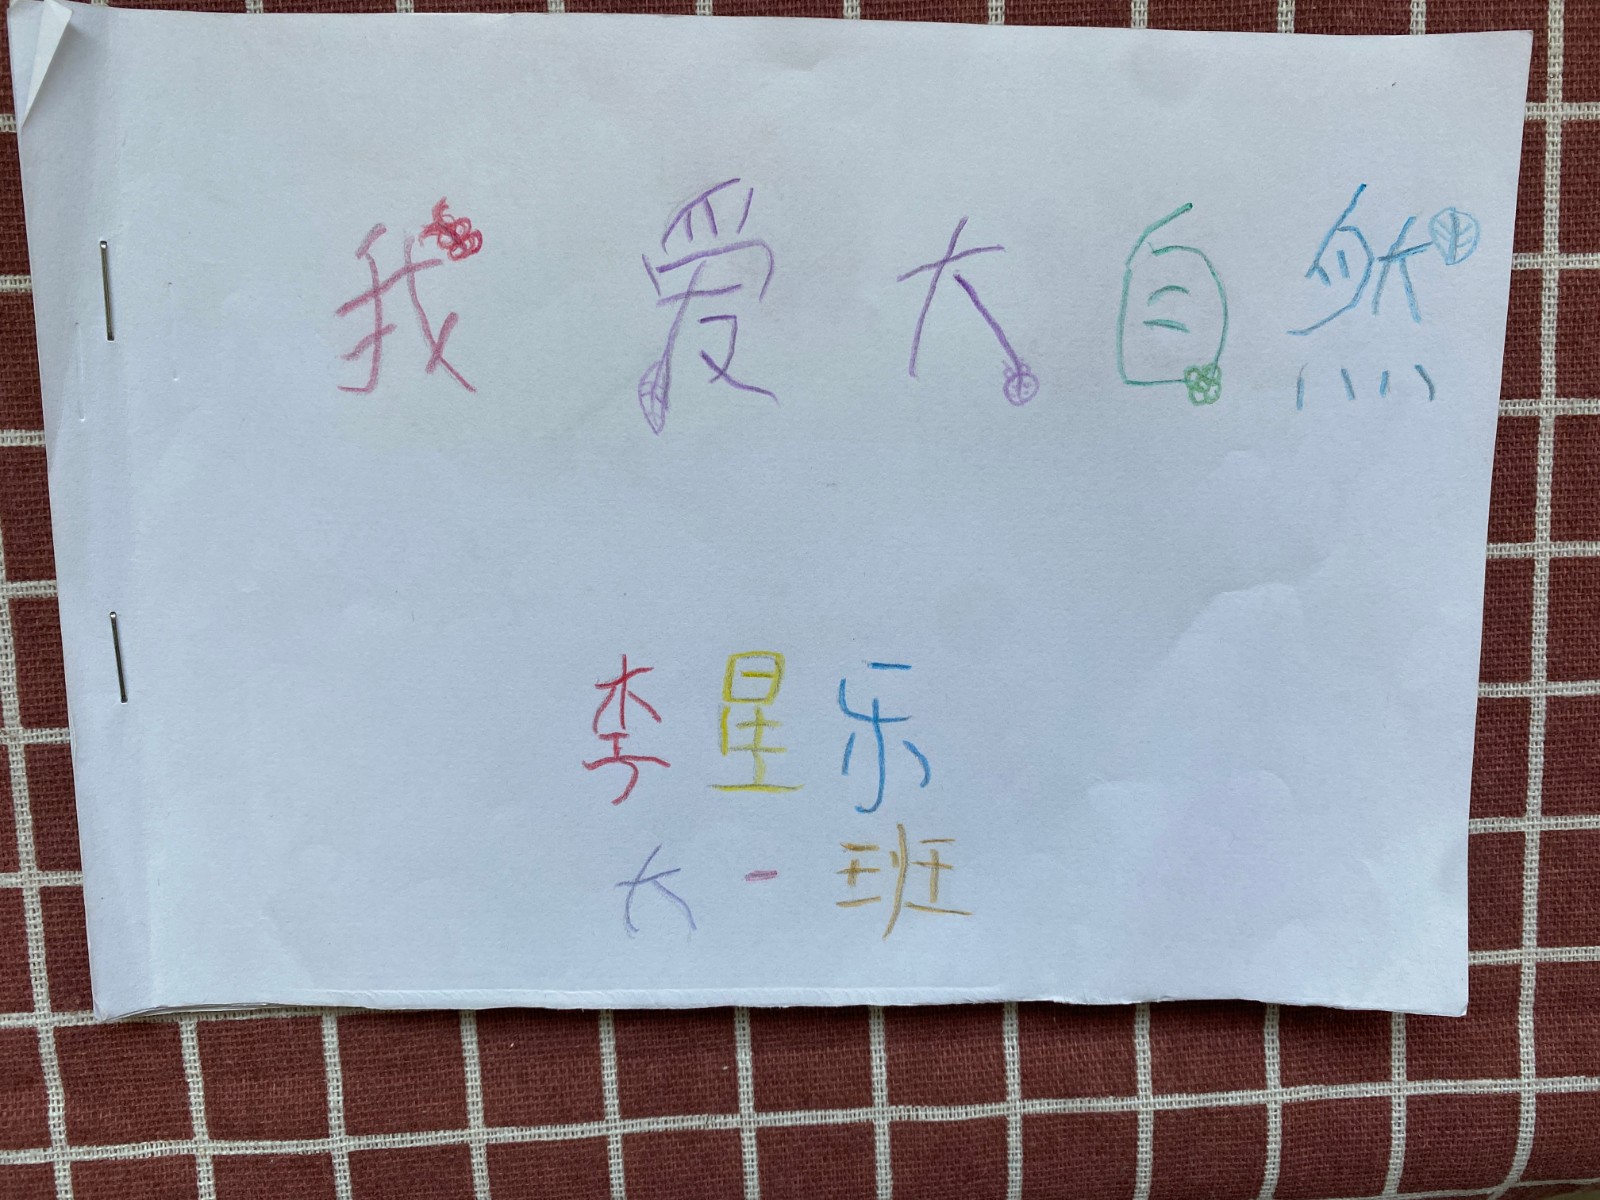 我爱大自然
李星乐
大一班